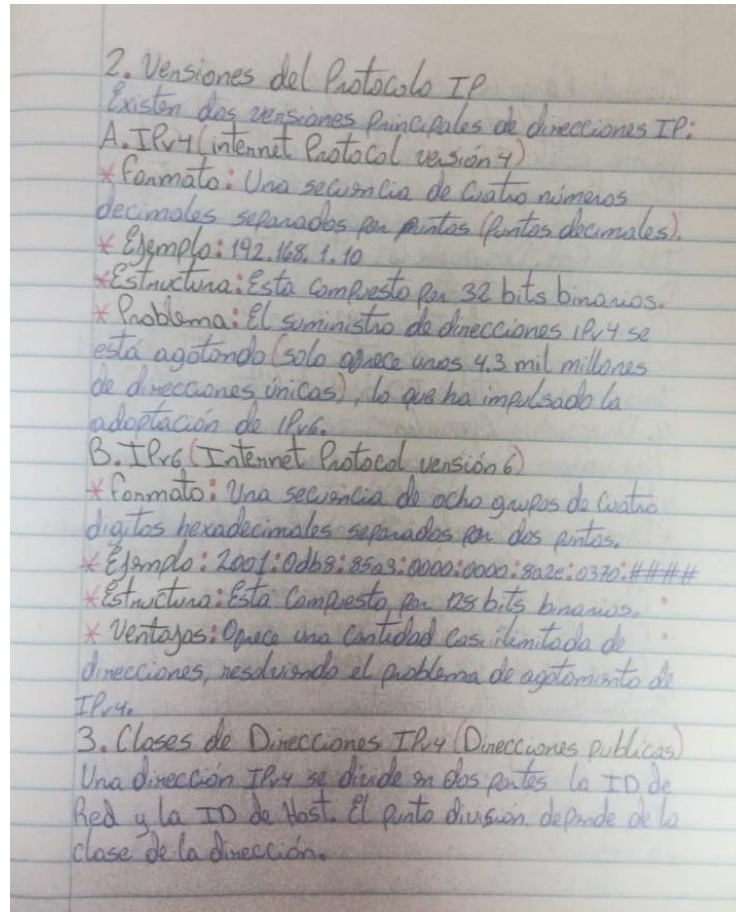 2. Versiones del Protocolo IP
Existen dos versiones principales de direcciones IP:
A. IPv4 (internet Protocol versión 4)
* Formato: Una secuencia de cuatro números
decimales separados por puntos (puntos decimales).
* Ejemplo: 192.168.1.10
* Estructura: Esta compuesto por 32 bits binarios.
* Problema: El suministro de direcciones IPv4 se
está agotando (solo ofrece unos 4.3 mil millones
de direcciones únicas), lo que ha impulsado la
adoptación de IPv6.
B. IPv6 (Internet Protocol versión 6)
* Formato: Una secuencia de ocho grupos de cuatro
digitos hexadecimales separados por dos puntos.
* Ejemplo: 2001:0db8:85a3:0000:0000:8a2e:0370:####
* Estructura: Está compuesto por 128 bits binarios.
* Ventajas: Ofrece una cantidad casi ilimitada de
direcciones, resolviendo el problema de agotamiento de
IPv4.
3. Clases de Direcciones IPv4 (Direcciones publicas)
Una dirección IPv4 se divide en dos partes la ID de
Red y la ID de Host. El punto división depende de la
clase de la dirección.